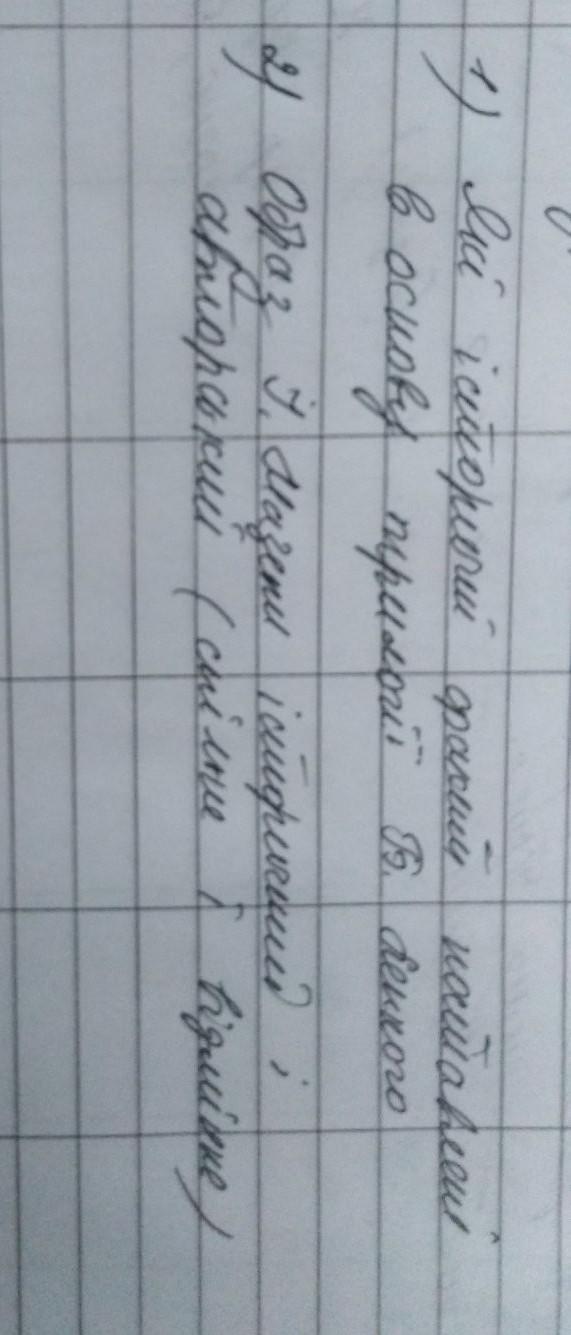 1) Які історичні факти поставлені
в основу трилогії Б. Лепкого
2) Образ І. Мазепи історичний і
авторський (спільне і відмінне)